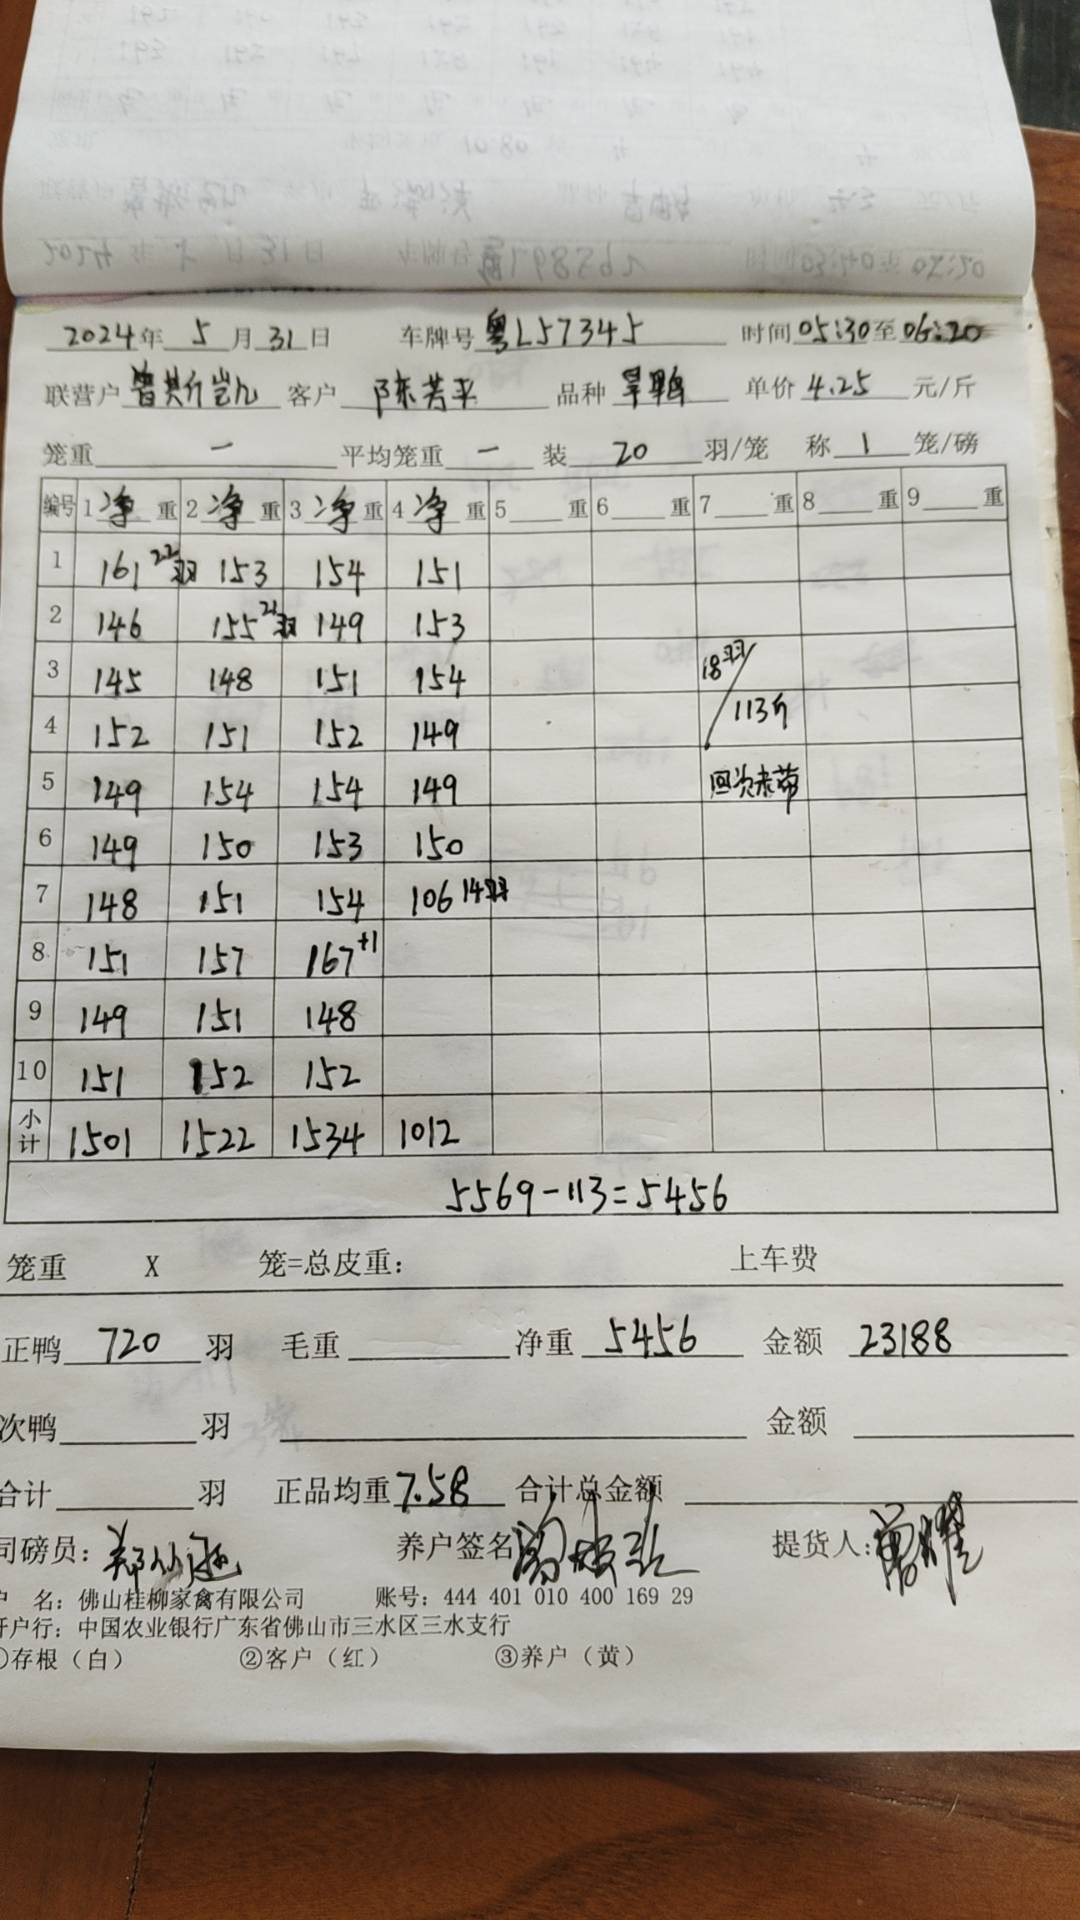 2024年 5 月 31 日 车牌号 粤L57345 时间 05:30 至 06:20
联营户 曾斯凯 客户 陈芳平 品种 旱鸭 单价 4.25 元/斤
笼重 一 平均笼重 一 装 20 羽/笼 称 1 笼/磅
编号 1 净 重 2 净 重 3 净 重 4 净 重 5 重 6 重 7 重 8 重 9 重
1 161 22羽 153 154 151
2 146 155 21羽 149 153
3 145 148 151 154 18羽/
4 152 151 152 149 113斤
5 149 154 154 149
6 149 150 153 150
7 148 151 154 106 14羽
8 151 157 167+1
9 149 151 148
10 151 152 152
小计 1501 1522 1534 1012
5569-113=5456
笼重 X 笼=总皮重: 上车费
正鸭 720 羽 毛重 净重 5456 金额 23188
次鸭 羽 金额
合计 羽 正品均重 7.58 合计总金额
司磅员: 养户签名 提货人:
户 名: 佛山桂柳家禽有限公司 账号: 444 401 010 400 169 29
开户行: 中国农业银行广东省佛山市三水区三水支行
①存根（白） ②客户（红） ③养户（黄）